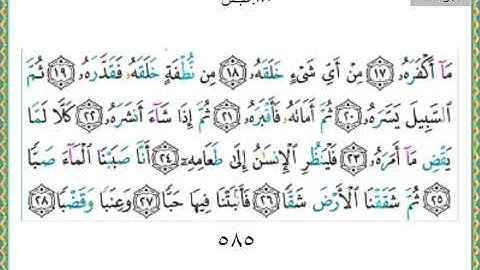 مَآ أَكْفَرَهُۥ ١٧ مِنْ أَىِّ شَىْءٍ خَلَقَهُۥ ١٨ مِن نُّطْفَةٍ خَلَقَهُۥ فَقَدَّرَهُۥ ١٩ ثُمَّ
ٱلسَّبِيلَ يَسَّرَهُۥ ٢٠ ثُمَّ أَمَاتَهُۥ فَأَقْبَرَهُۥ ٢١ ثُمَّ إِذَا شَآءَ أَنشَرَهُۥ ٢٢ كَلَّا لَمَّا
يَقْضِ مَآ أَمَرَهُۥ ٢٣ فَلْيَنظُرِ ٱلْإِنسَٰنُ إِلَىٰ طَعَامِهِۦٓ ٢٤ أَنَّا صَبَبْنَا ٱلْمَآءَ صَبًّا
٢٥ ثُمَّ شَقَقْنَا ٱلْأَرْضَ شَقًّا ٢٦ فَأَنۢبَتْنَا فِيهَا حَبًّا ٢٧ وَعِنَبًا وَقَضْبًا ٢٨
٥٨٥